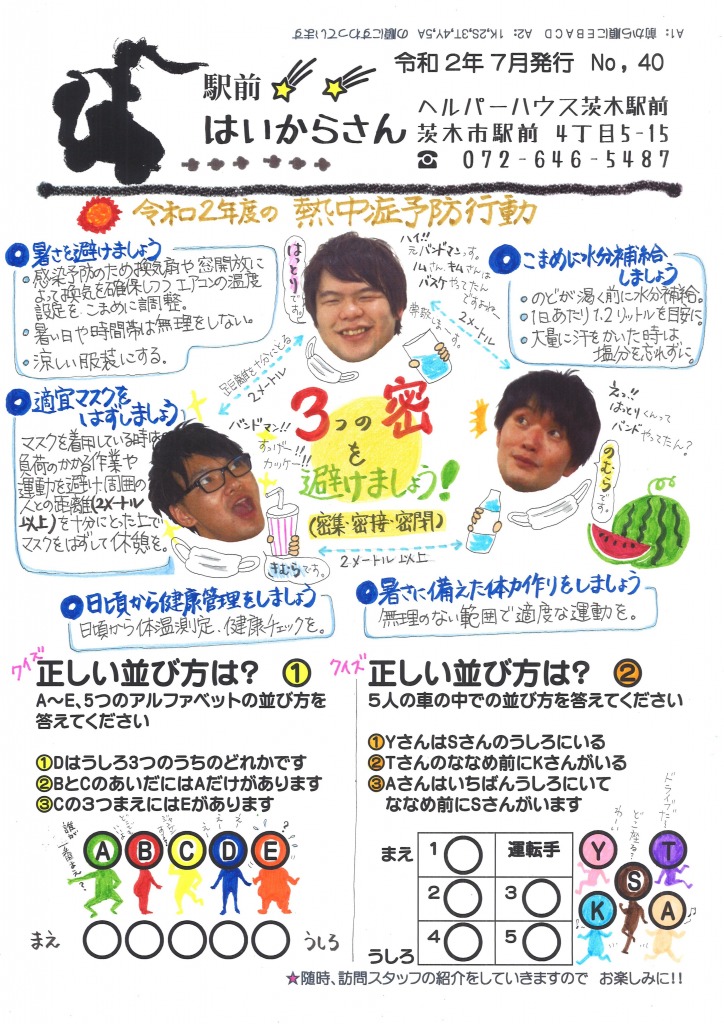 A1: 前から順にEBACD A2: 1K,2S,3T,4Y,5A の順にすわっています
令和2年7月発行 No,40
駅前
はいからさん
ヘルパーハウス茨木駅前
茨木市駅前 4丁目5-15
☎ 072-646-5487
令和2年度の 熱中症予防行動
暑さを避けましょう
・感染予防のため換気扇や窓開放に
よって換気を確保しつつエアコンの温度
設定をこまめに調整。
・暑い日や時間帯は無理をしない。
・涼しい服装にする。
はっとりです。
ハイ!!
元バンドマンっす。
バスケやってたん
ですよねー
2メートル
こまめに水分補給
しましょう
・のどが渇く前に水分補給。
・1日あたり1.2リットルを目安に。
・大量に汗をかいた時は
塩分を忘れずに。
足距離を十分にとる
2メートル
適宜マスクを
はずしましょう
マスクを着用している時は
負荷のかかる作業や
運動を避け周囲の
人との距離(2メートル
以上)を十分にとった上で
マスクをはずして休憩を。
バンドマン!!
すっげー!!
カッケー!!
3つの密
を
避けましょう!
(密集・密接・密閉)
えっ!!
はっとりくんって
バンドやってたん?
のむらです。
きむらです。
2メートル以上
日頃から健康管理をしましょう
日頃から体温測定、健康チェックを。
暑さに備えた体力作りをしましょう
無理のない範囲で適度な運動を。
クイズ
正しい並び方は? ①
A〜E、5つのアルファベットの並び方を
答えてください
①Dはうしろ3つのうちのどれかです
②BとCのあいだにはAだけがあります
③Cの3つまえにはEがあります
誰が
一番まえ?
A B C D E
まえ うしろ
クイズ
正しい並び方は? ②
5人の車の中での並び方を答えてください
①YさんはSさんのうしろにいる
②Tさんのななめ前にKさんがいる
③Aさんはいちばんうしろにいて
ななめ前にSさんがいます
ドライブだー
どこ座る?
わーい
まえ 1 運転手
2 3
うしろ 4 5
Y T
S
K A
★随時、訪問スタッフの紹介をしていきますので お楽しみに!!